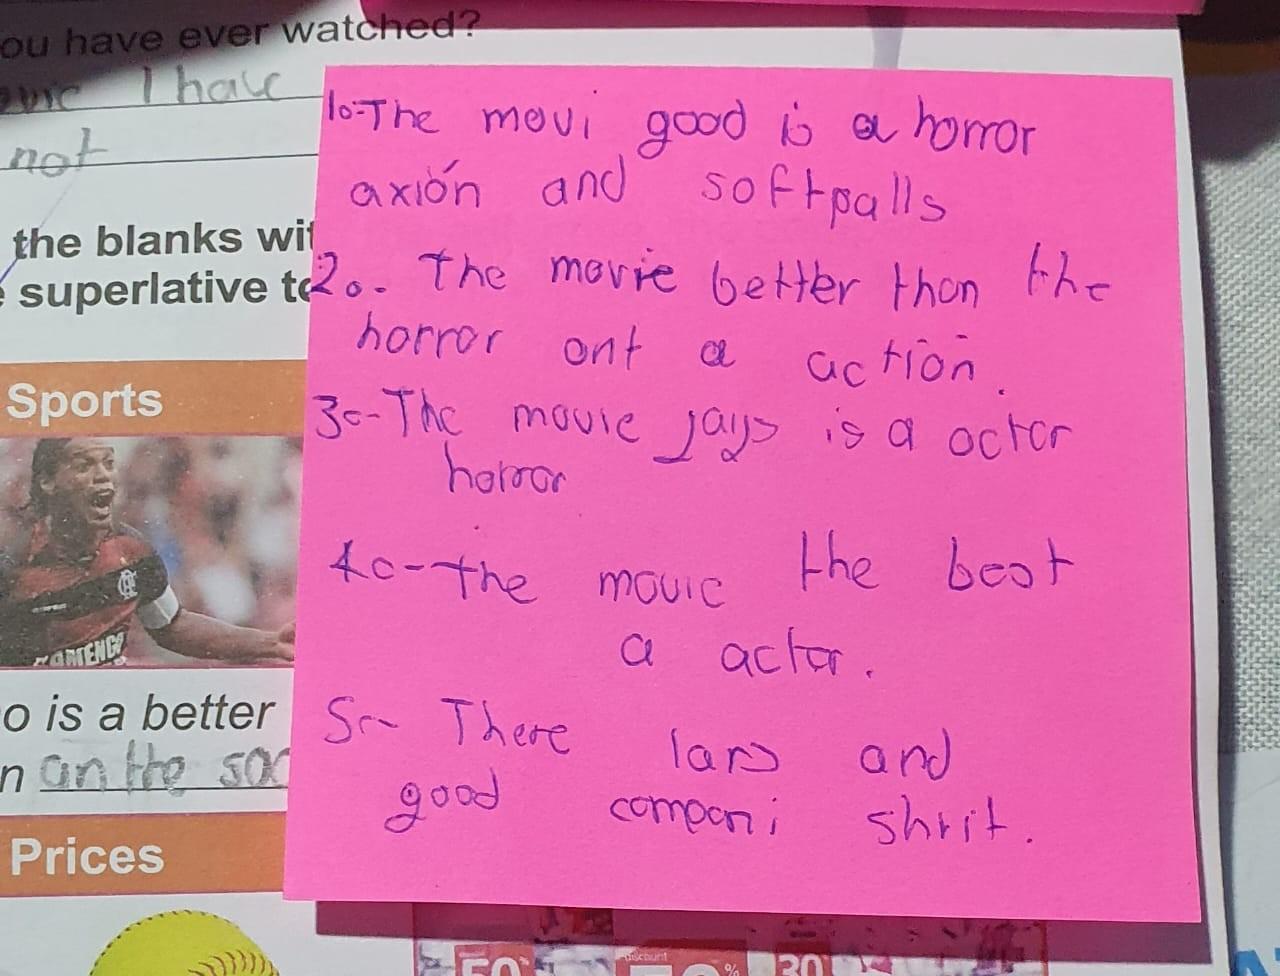 ou have ever watched?
I have
not
the blanks wi
superlative to
Sports
o is a better
n an the soc
Prices
1o-The movi good is a horror
axión and softpalls
2o- The movie better than the
horror ont a action.
3o-The movie jays is a octor
horror
4o-the movie the best
a actor.
5o- There lars and
good componi shrit.
50
discount
%
30